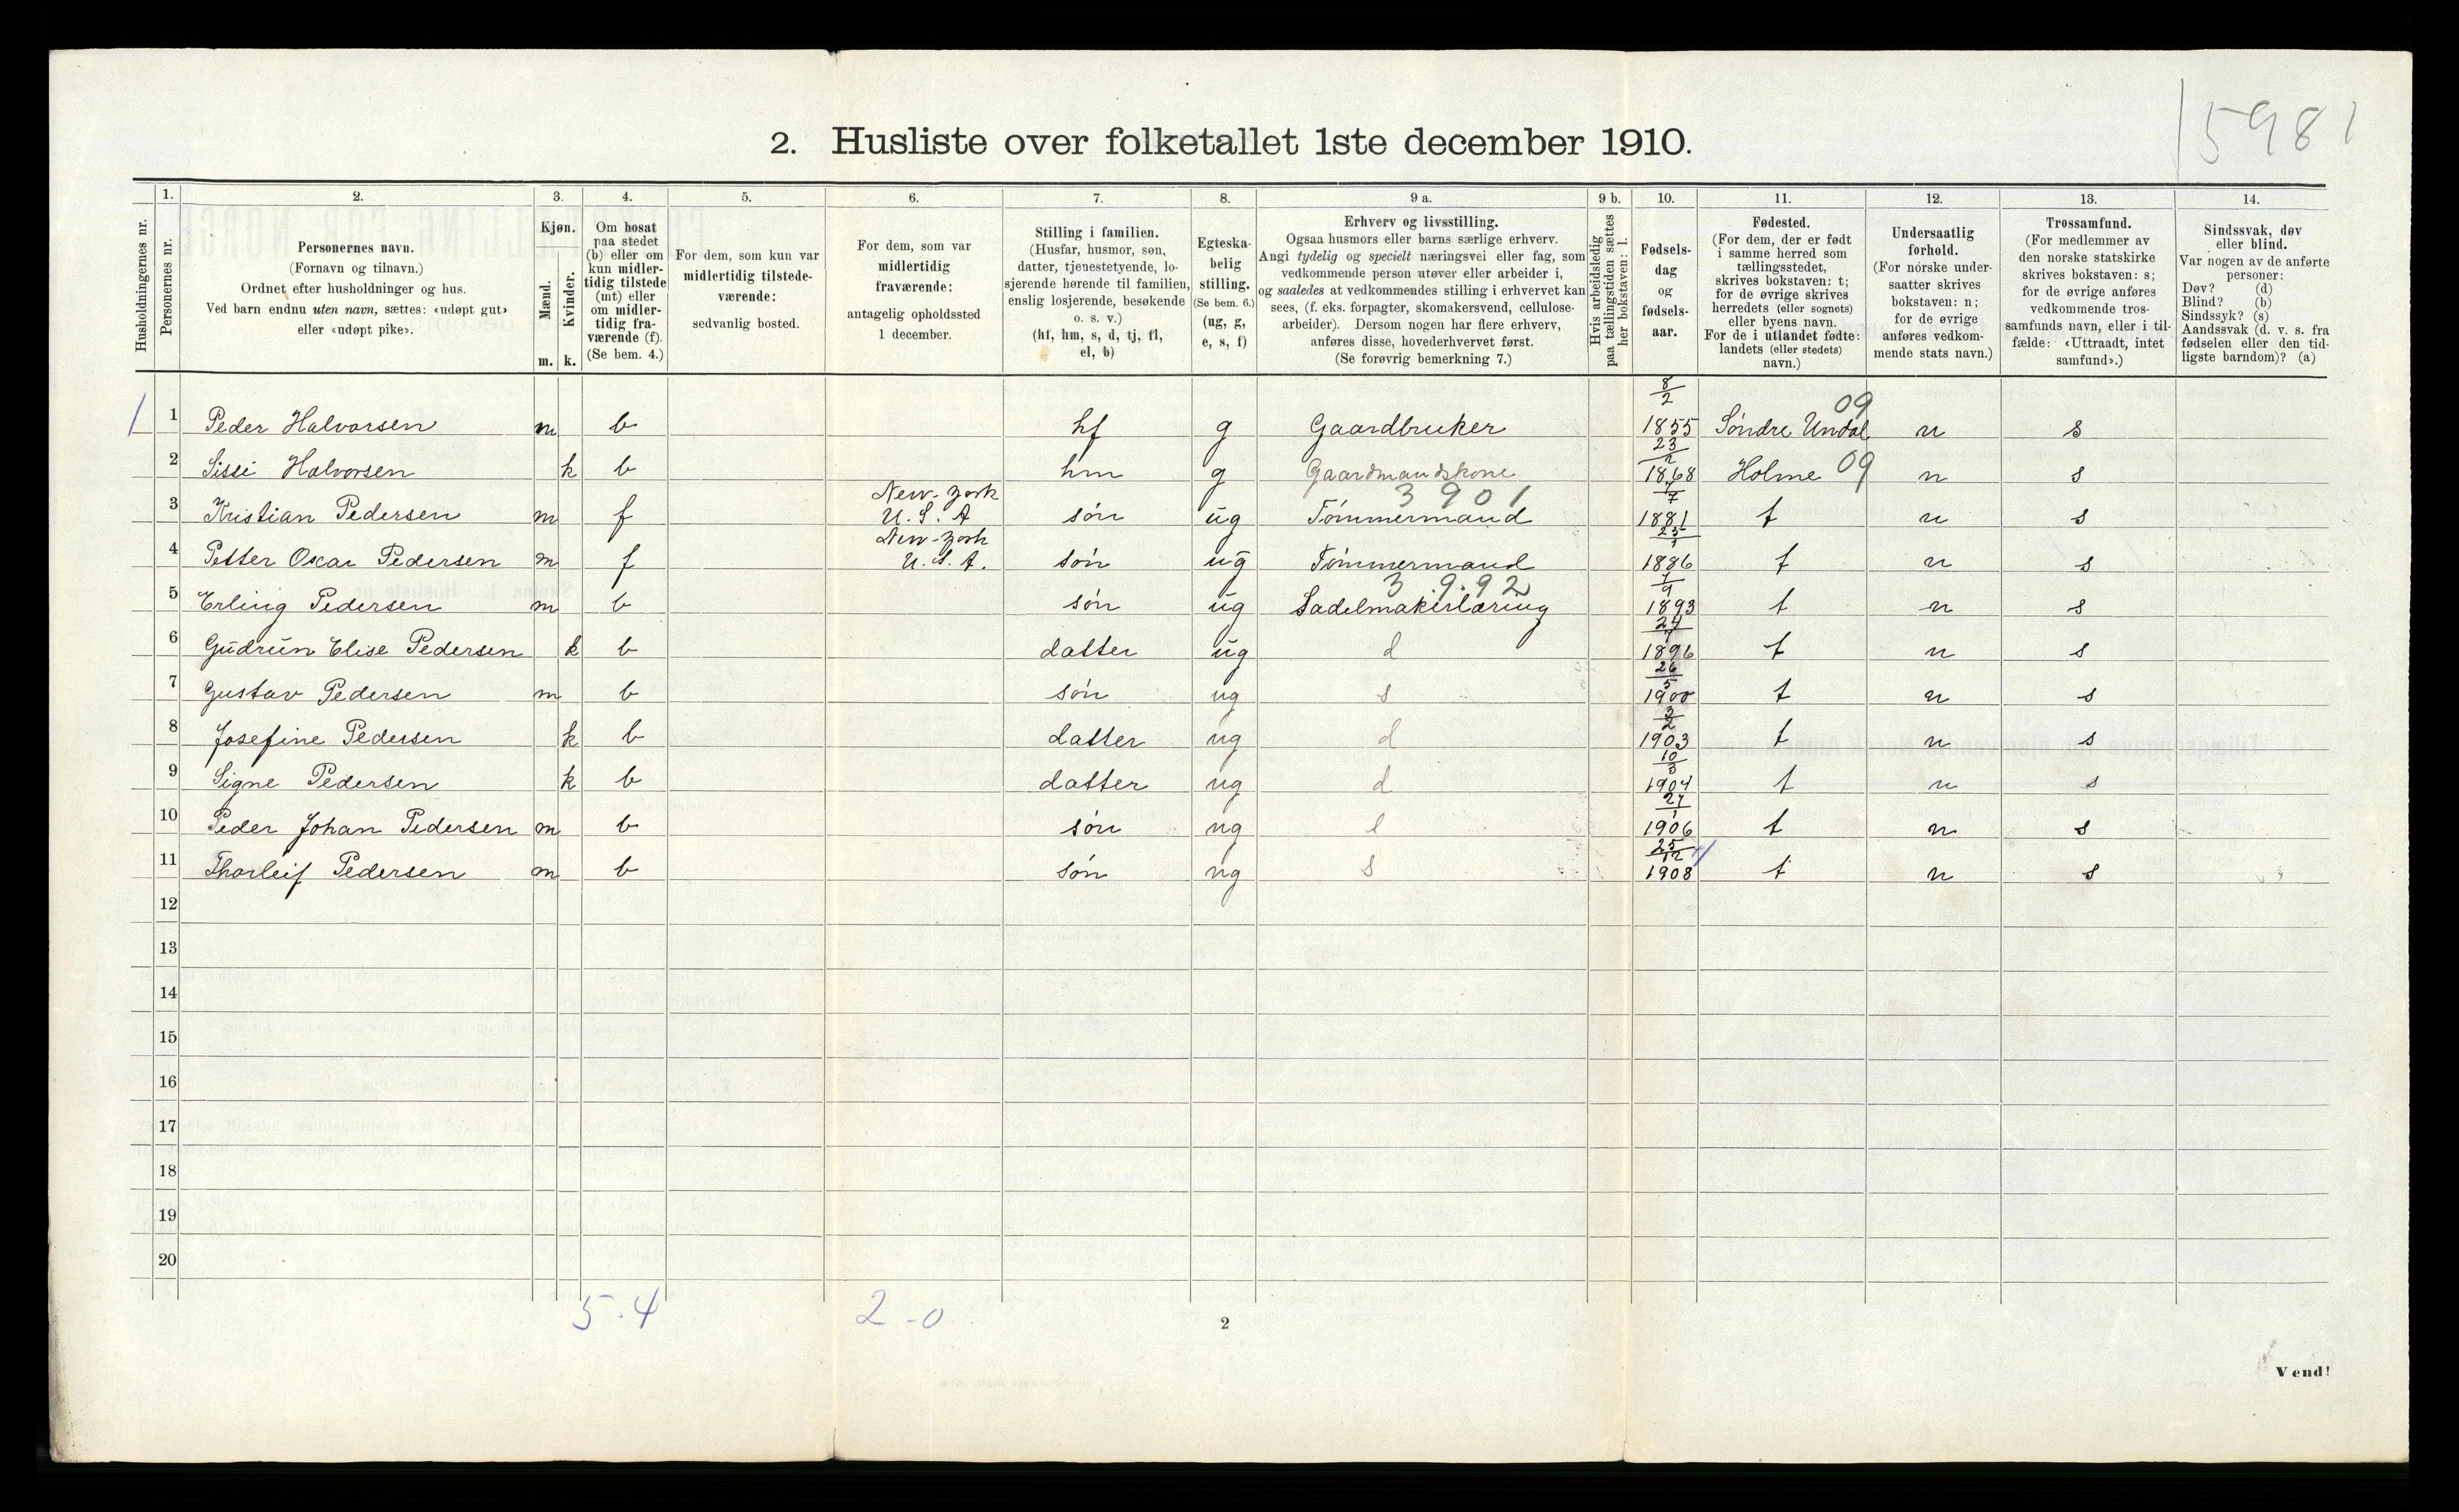 15981
2. Husliste over folketallet 1ste december 1910.
Husholdningernes nr.
1.
Personernes nr.
2.
Personernes navn.
(Fornavn og tilnavn.)
Ordnet efter husholdninger og hus.
Ved barn endnu uten navn, sættes: «udøpt gut»
eller «udøpt pike».
3.
Kjøn.
Mænd.
Kvinder.
m. k.
4.
Om bosat
paa stedet
(b) eller om
kun midler-
tidig tilstede
(mt) eller
om midler-
tidig fra-
værende (f).
(Se bem. 4.)
5.
For dem, som kun var
midlertidig tilstede-
værende:
sedvanlig bosted.
6.
For dem, som var
midlertidig
fraværende:
antagelig opholdssted
1 december.
7.
Stilling i familien.
(Husfar, husmor, søn,
datter, tjenestetyende, lo-
sjerende hørende til familien,
enslig losjerende, besøkende
o. s. v.)
(hf, hm, s, d, tj, fl,
el, b)
8.
Egteska-
belig
stilling.
(Se bem. 6.)
(ug, g,
e, s, f)
9 a.
Erhverv og livsstilling.
Ogsaa husmors eller barns særlige erhverv.
Angi tydelig og specielt næringsvei eller fag, som
vedkommende person utøver eller arbeider i,
og saaledes at vedkommendes stilling i erhvervet kan
sees, (f. eks. forpagter, skomakersvend, cellulose-
arbeider). Dersom nogen har flere erhverv,
anføres disse, hovederhvervet først.
(Se forøvrig bemerkning 7.)
9 b.
Hvis arbeidsledig
paa tællingstiden sættes
her bokstaven: l.
10.
Fødsels-
dag
og
fødsels-
aar.
11.
Fødested.
(For dem, der er født
i samme herred som
tællingsstedet,
skrives bokstaven: t;
for de øvrige skrives
herredets (eller sognets)
eller byens navn.
For de i utlandet fødte:
landets (eller stedets)
navn.)
12.
Undersaatlig
forhold.
(For norske under-
saatter skrives
bokstaven: n;
for de øvrige
anføres vedkom-
mende stats navn.)
13.
Trossamfund.
(For medlemmer av
den norske statskirke
skrives bokstaven: s;
for de øvrige anføres
vedkommende tros-
samfunds navn, eller i til-
fælde: «Uttraadt, intet
samfund».)
14.
Sindssvak, døv
eller blind.
Var nogen av de anførte
personer:
Døv? (d)
Blind? (b)
Sindssyk? (s)
Aandssvak (d. v. s. fra
fødselen eller den tid-
ligste barndom)? (a)
1 1 Peder Halvorsen m b hf g Gaardbruker 8/2 1855 Søndre Undal 09 n s
2 Sissi Halvorsen k b hm g Gaardmandskone 23/2 1868 Holme 09 n s
3 Kristian Pedersen m f New-York U. S. A søn ug 3901 Tømmermand 7/7 1881 t n s
4 Petter Oscar Pedersen m f New-York U. S. A. søn ug Tømmermand 1886 t n s
5 Erling Pedersen m b søn ug 3.9.92 Sadelmakerlæring 1893 t n s
6 Gudrun Elise Pedersen k b datter ug d 1896 t n s
7 Gustav Pedersen m b søn ug s 26/5 1900 t n s
8 Josefine Pedersen k b datter ug d 3/2 1903 t n s
9 Signe Pedersen k b datter ug d 10/3 1904 t n s
10 Peder Johan Pedersen m b søn ug 1906 t n s
11 Thorleif Pedersen m b søn ug s 25/12 1908 t n s
12
13
14
15
16
17
18
19
20
5.4 2-0
2
Vend!